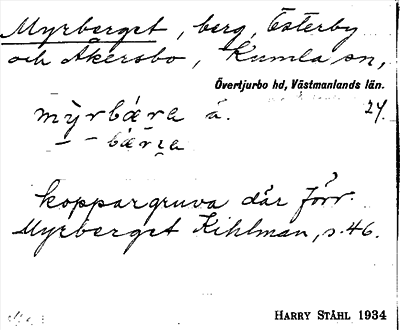 Myrberget, berg, Österby
och Åkersbo, Kumla sn,
Övertjurbo hd, Västmanlands län.
mỳrbǽra å. 24.
— — bǽrɪa
koppargruva där förr.
Myrberget Kihlman, s. 46.
HARRY STÅHL 1934